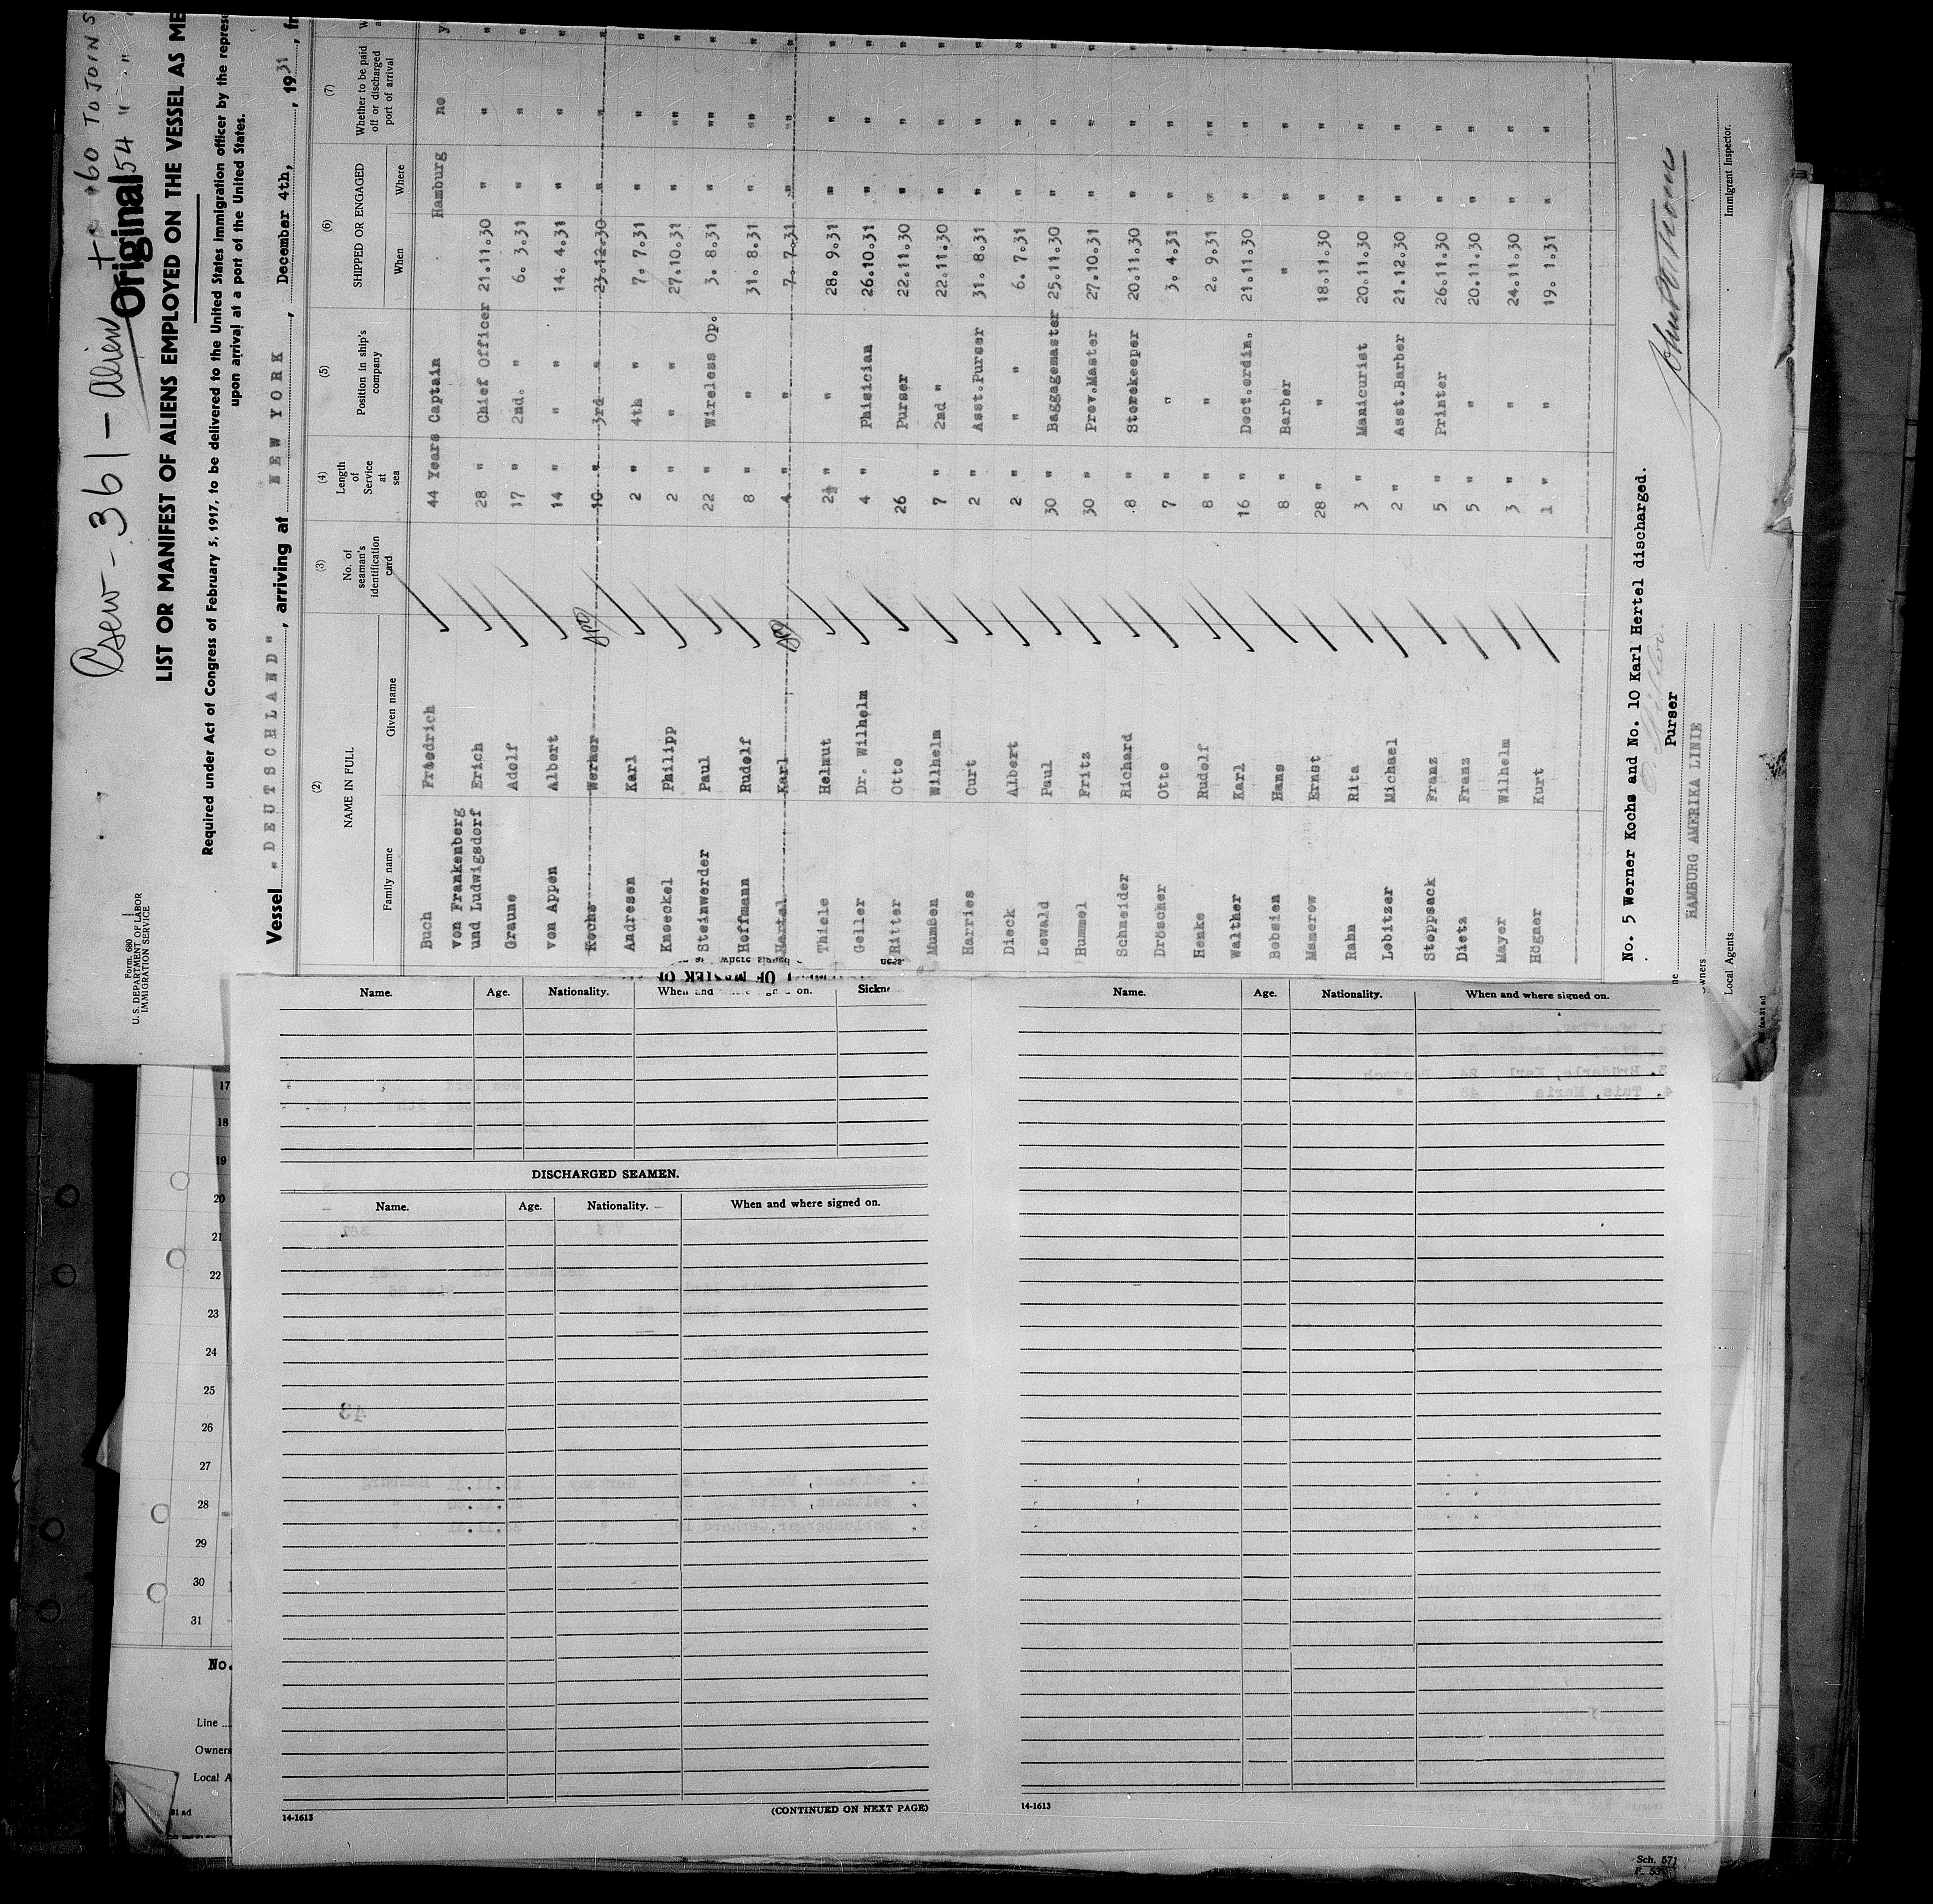 Crew - 361 - alien
60 TO JOIN S
Original 54 " " "
LIST OR MANIFEST OF ALIENS EMPLOYED ON THE VESSEL AS ME
Required under Act of Congress of February 5, 1917, to be delivered to the United States immigration officer by the represe
upon arrival at a port of the United States.
Form 680
U. S. DEPARTMENT OF LABOR
IMMIGRATION SERVICE
Vessel "DEUTSCHLAND", arriving at NEW YORK, December 4th, 1931, fr
(2) (3) (4) (5) (6) (7)
NAME IN FULL No. of seaman's identification card Length of Service at sea Position in ship's company SHIPPED OR ENGAGED Whether to be paid off or discharged port of arrival
Family name Given name When Where
Buch Friedrich 44 Years Captain Hamburg no
von Frankenberg
und Ludwigsdorf Erich 28 " Chief Officer 21.11.30 " "
Graune Adolf 17 " 2nd. " 6. 3.31 " "
von Appen Albert 14 " " 14. 4.31 " "
Kochs Werner 10 " 3rd " 23.12.30 " "
Andresen Karl 2 " 4th " 7. 7.31 " "
Knoeckel Philipp 2 " " 27.10.31 " "
Steinwerder Paul 22 " Wireless Op. 3. 8.31 " "
Hoffmann Rudolf 8 " " 31. 8.31 " "
Hertel Karl 4 " " 7. 7.31 " "
Thiele Helmut 2½ " " 28. 9.31 " "
Geller Dr. Wilhelm 4 " Phisician 26.10.31 " "
Ritter Otto 26 Purser 22.11.30 " "
Mumßen Wilhelm 7 " 2nd " 22.11.30 " "
Harries Curt 2 " Asst.Purser 31. 8.31 " "
Dieck Albert 2 " " " 6. 7.31 " "
Lewald Paul 30 " Baggagemaster 25.11.30 " "
Hummel Fritz 30 " Prov.Master 27.10.31 " "
Schneider Richard 8 " Storekeeper 20.11.30 " "
Dröscher Otto 7 " " 3. 4.31 " "
Henke Rudolf 8 " " 2. 9.31 " "
Walther Karl 16 " Doct.ordin. 21.11.30 " "
Bobsien Hans 8 " Barber " " "
Mamerow Ernst 28 " " 18.11.30 " "
Rahn Rita 3 " Manicurist 20.11.30 " "
Lobitzer Michael 2 " Asst.Barber 21.12.30 " "
Stoppsack Franz 5 " Printer 26.11.30 " "
Dietz Franz 5 " " 20.11.30 " "
Mayer Wilhelm 3 " " 24.11.30 " "
Högner Kurt 1 " " 19. 1.31 " "
No. 5 Werner Kochs and No. 10 Karl Hertel discharged.
Purser
HAMBURG AMERIKA LINIE
Owners
Local Agents
Immigrant Inspector.
Name. Age. Nationality. When and where signed on. Sickne
DISCHARGED SEAMEN.
Name. Age. Nationality. When and where signed on.
14-1613
(CONTINUED ON NEXT PAGE)
Name. Age. Nationality. When and where signed on.
14-1613
17
18
19
20
21
22
23
24
25
26
27
28
29
30
31
No.
Line
Owners
Local A
81 ad
Sch. 571